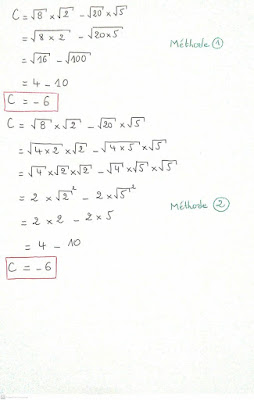 C = √8 × √2 − √20 × √5
= √8 × 2 − √20 × 5
Méthode 1
= √16 − √100
= 4 − 10
C = − 6
C = √8 × √2 − √20 × √5
= √4 × 2 × √2 − √4 × 5 × √5
= √4 × √2 × √2 − √4 × √5 × √5
= 2 × √2² − 2 × √5²
Méthode 2
= 2 × 2 − 2 × 5
= 4 − 10
C = − 6